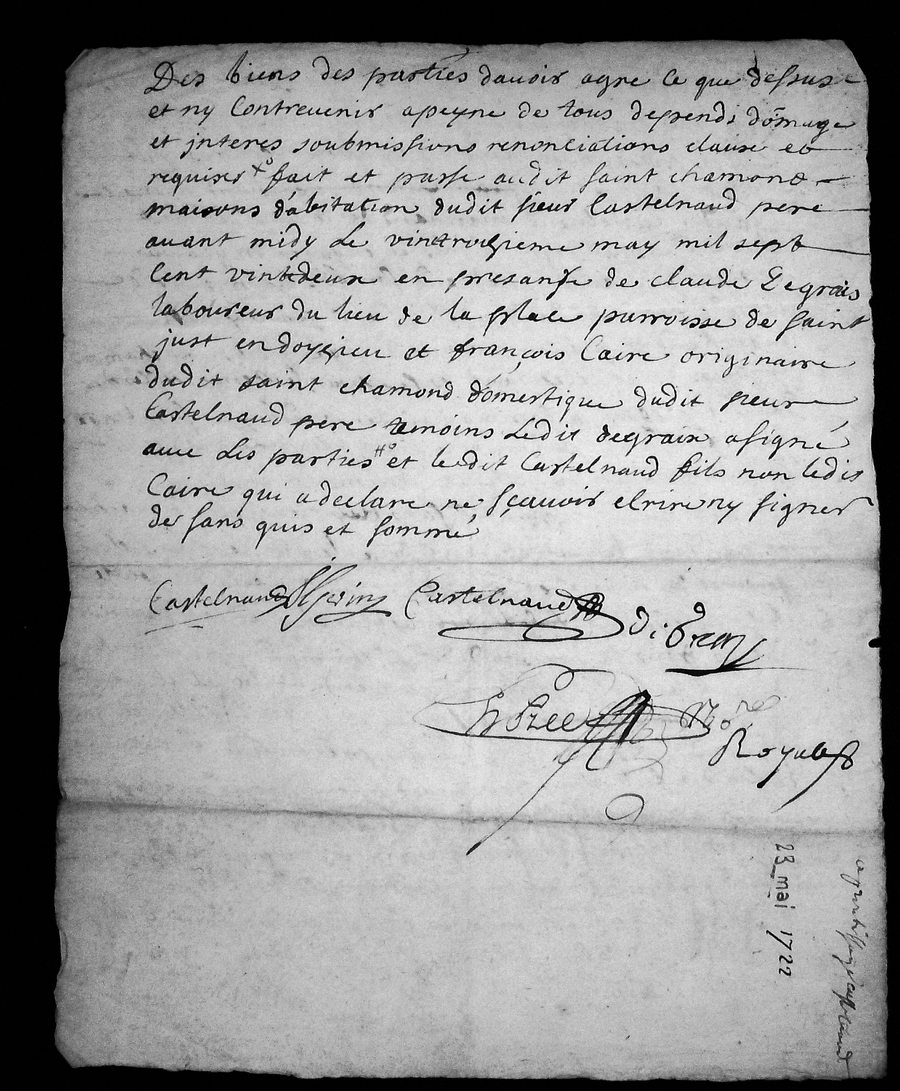 Des biens des parties davoir agre ce que dessus
et ny Contrevenir a peyne de tous despends dōmage
et jnteres soubmissions renonciations clause et
requises fait et passe audit saint chamond
maisons dabitation dudit sieur Castelnaud pere
avant midy le vintroizieme may mil sept
Cent vintedeux en presanse de claude Degraix
laboureur du lieu de la place parroisse de saint
just en doyzieu et françois Caire originaire
dudit saint chamond domestique dudit sieur
Castelnaud pere temoins Ledit degraix a signé
avec Les parties et ledit Castelnaud fils non ledit
Caire qui a declare ne sçavoir escrire ny signer
de sans quis et sommé
Castelnaud Castelnaud
Royal
23 mai 1722